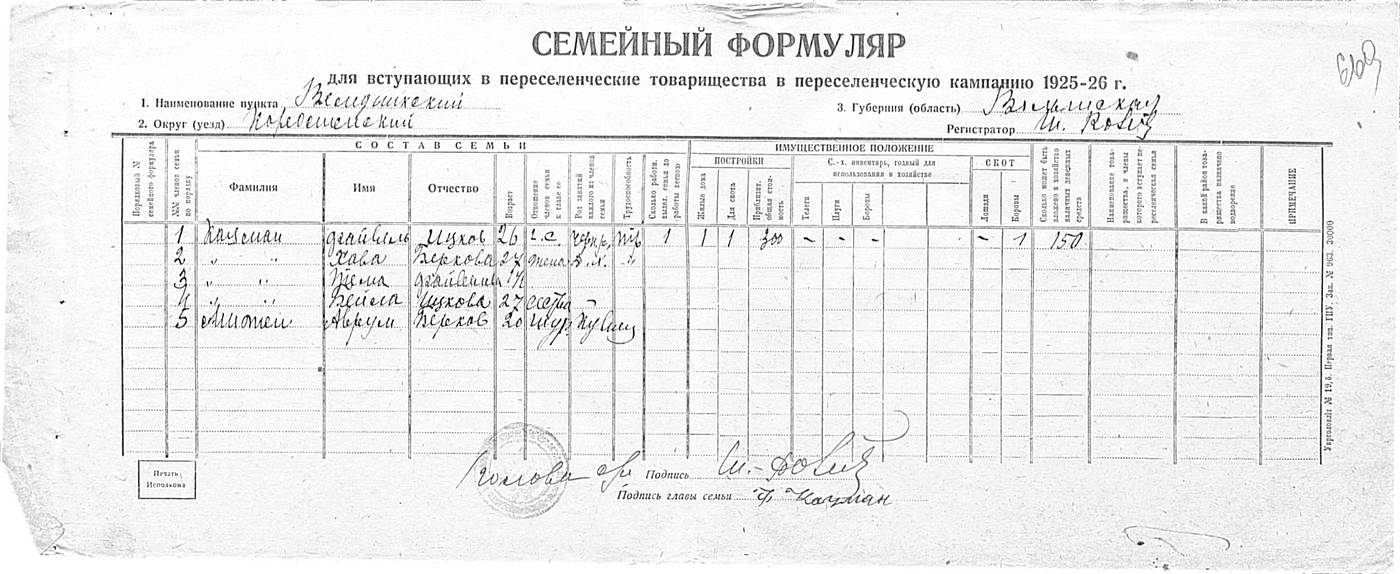 СЕМЕЙНЫЙ ФОРМУЛЯР
для вступающих в переселенческие товарищества в переселенческую кампанию 1925-26 г.
1. Наименование пункта
3. Губерния (область) Волынская
2. Округ (уезд) Коростенский
Регистратор Ш.
СОСТАВ СЕМЬИ
ИМУЩЕСТВЕННОЕ ПОЛОЖЕНИЕ
Порядковый № семейного формуляра
№№ членов семьи по порядку
Фамилия
Имя
Отчество
Возраст
Отношение членов семьи к главе ее
Род занятий каждого из членов семьи
Трудоспособность
Сколько работн. выдел. семья до работы весною
ПОСТРОЙКИ
Жилые дома
Для скота
Приблизит. общая стоимость
С.-х. инвентарь, годный для использования в хозяйстве
Телеги
Плуги
Бороны
СКОТ
Лошади
Коровы
Сколько может быть вложено в хозяйство наличных денежных средств
Наименование товарищества, в члены которого вступает переселенческая семья
В какой район товарищества назначено водворение
ПРИМЕЧАНИЕ
1 Кацман Файвель Ицков 26 г.с. 1 1 1 300 - - - - 1 150
2 " " Хава Беркова 27 жена д.х. "
3 " " 1½
4 " " Бейла Ицкова 27 сестра -
5 Аврум Берков 20 шур.
Печать Исполкома
Подпись Ш.
Подпись главы семьи Ф Кацман
Укрголовліт № 19, б. Первая тип. ГПУ. Зак. № 963. 30000